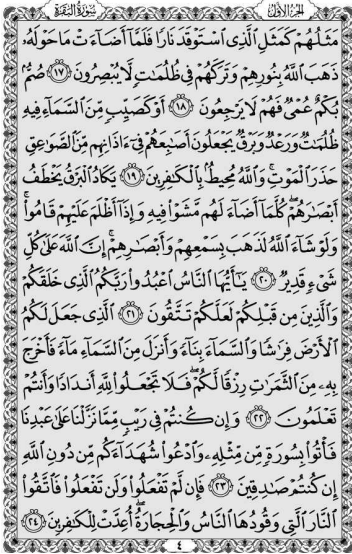 الجزء الأول
سورة البقرة
مَثَلُهُمْ كَمَثَلِ الَّذِي اسْتَوْقَدَ نَارًا فَلَمَّا أَضَاءَتْ مَا حَوْلَهُ
ذَهَبَ اللَّهُ بِنُورِهِمْ وَتَرَكَهُمْ فِي ظُلُمَاتٍ لَّا يُبْصِرُونَ ١٧ صُمٌّ
بُكْمٌ عُمْيٌ فَهُمْ لَا يَرْجِعُونَ ١٨ أَوْ كَصَيِّبٍ مِّنَ السَّمَاءِ فِيهِ
ظُلُمَاتٌ وَرَعْدٌ وَبَرْقٌ يَجْعَلُونَ أَصَابِعَهُمْ فِي آذَانِهِم مِّنَ الصَّوَاعِقِ
حَذَرَ الْمَوْتِ ۚ وَاللَّهُ مُحِيطٌ بِالْكَافِرِينَ ١٩ يَكَادُ الْبَرْقُ يَخْطَفُ
أَبْصَارَهُمْ ۖ كُلَّمَا أَضَاءَ لَهُم مَّشَوْا فِيهِ وَإِذَا أَظْلَمَ عَلَيْهِمْ قَامُوا ۚ
وَلَوْ شَاءَ اللَّهُ لَذَهَبَ بِسَمْعِهِمْ وَأَبْصَارِهِمْ ۚ إِنَّ اللَّهَ عَلَىٰ كُلِّ
شَيْءٍ قَدِيرٌ ٢٠ يَا أَيُّهَا النَّاسُ اعْبُدُوا رَبَّكُمُ الَّذِي خَلَقَكُمْ
وَالَّذِينَ مِن قَبْلِكُمْ لَعَلَّكُمْ تَتَّقُونَ ٢١ الَّذِي جَعَلَ لَكُمُ
الْأَرْضَ فِرَاشًا وَالسَّمَاءَ بِنَاءً وَأَنزَلَ مِنَ السَّمَاءِ مَاءً فَأَخْرَجَ
بِهِ مِنَ الثَّمَرَاتِ رِزْقًا لَّكُمْ ۖ فَلَا تَجْعَلُوا لِلَّهِ أَندَادًا وَأَنتُمْ
تَعْلَمُونَ ٢٢ وَإِن كُنتُمْ فِي رَيْبٍ مِّمَّا نَزَّلْنَا عَلَىٰ عَبْدِنَا
فَأْتُوا بِسُورَةٍ مِّن مِّثْلِهِ وَادْعُوا شُهَدَاءَكُم مِّن دُونِ اللَّهِ
إِن كُنتُمْ صَادِقِينَ ٢٣ فَإِن لَّمْ تَفْعَلُوا وَلَن تَفْعَلُوا فَاتَّقُوا
النَّارَ الَّتِي وَقُودُهَا النَّاسُ وَالْحِجَارَةُ ۖ أُعِدَّتْ لِلْكَافِرِينَ ٢٤
٤